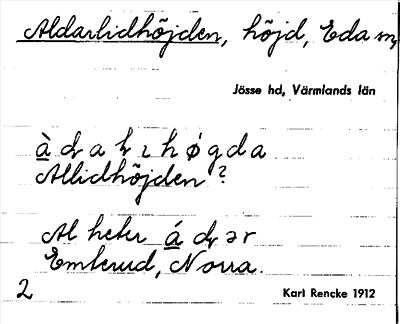 Aldarlidhöjden, höjd, Eda sn,
Jösse hd, Värmlands län
Allidhöjden?
Al heter
Emterud, Norra.
2
Karl Rencke 1912